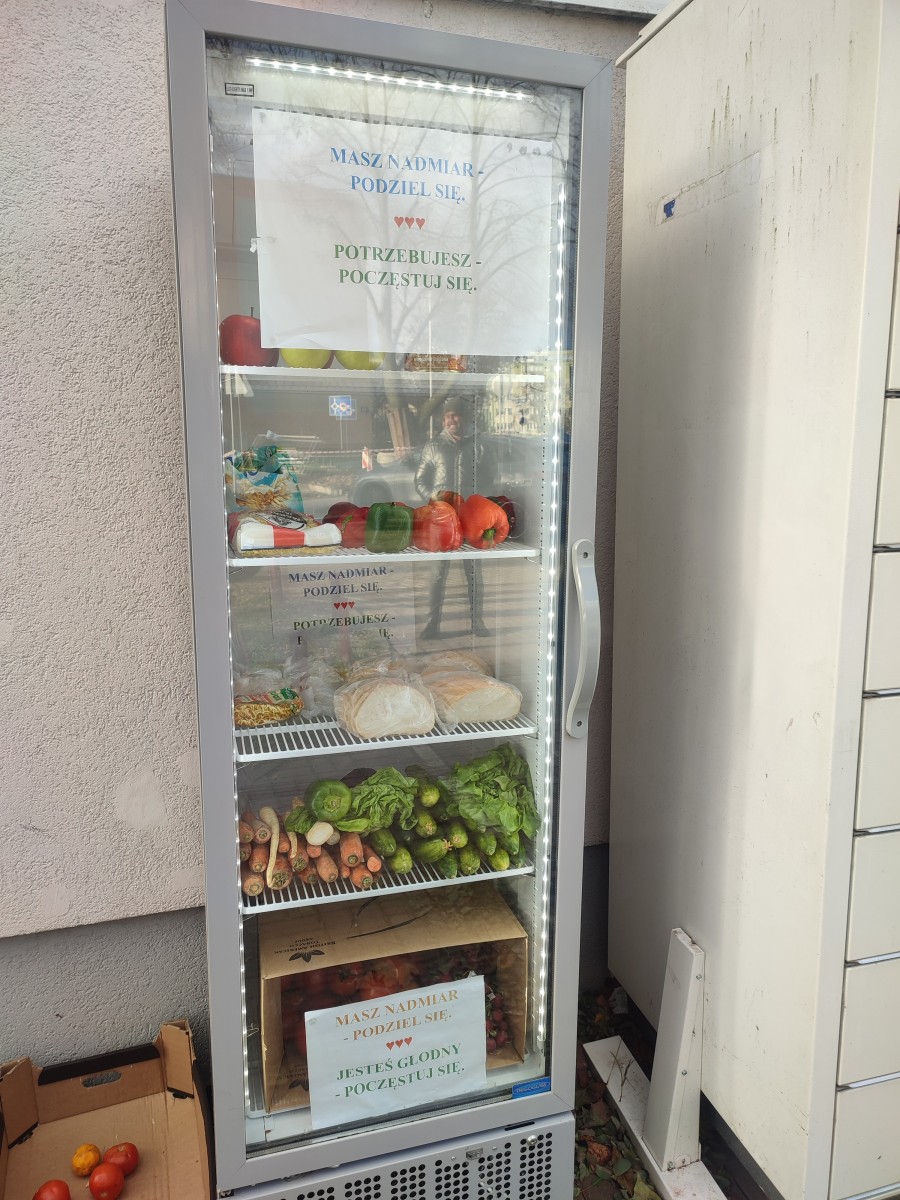 MASZ NADMIAR -
PODZIEL SIĘ.
♥♥♥
POTRZEBUJESZ -
POCZĘSTUJ SIĘ.
MASZ NADMIAR -
PODZIEL SIĘ.
♥♥♥
POTRZEBUJESZ -
BRITISH AMERICAN
TOBACCO
MASZ NADMIAR
- PODZIEL SIĘ.
♥♥♥
JESTEŚ GŁODNY
- POCZĘSTUJ SIĘ.